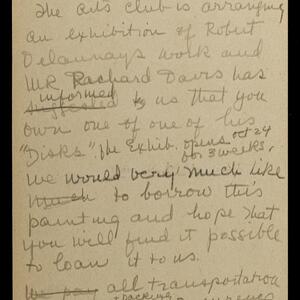 The arts club is arranging
an exhibition of Robert
Delaunays work and
MR Rachard Davis has
informed
suggested to us that you
own one of one of his
"Disks". the Exhib. opens oct 24
for 3 weeks,
we would very much like
much to borrow this
painting and hope that
you will find it possible
to loan it to us.
We pay all transportation
+ packing